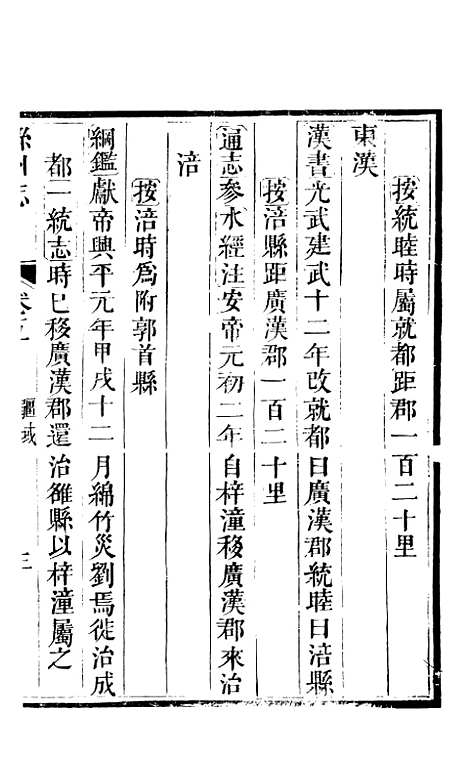 按統睦時屬就都距郡一百二十里
東漢
漢書光武建武十二年改就都曰廣漢郡統睦曰涪縣
按涪縣距廣漢郡一百二十里
通志參水經注安帝元初二年自梓潼移廣漢郡來治
涪
按涪時爲附郭首縣
綱鑑獻帝興平元年甲戌十二月綿竹災劉焉徙治成
都一統志時已移廣漢郡還治雒縣以梓潼屬之
州志
卷之
疆域
三